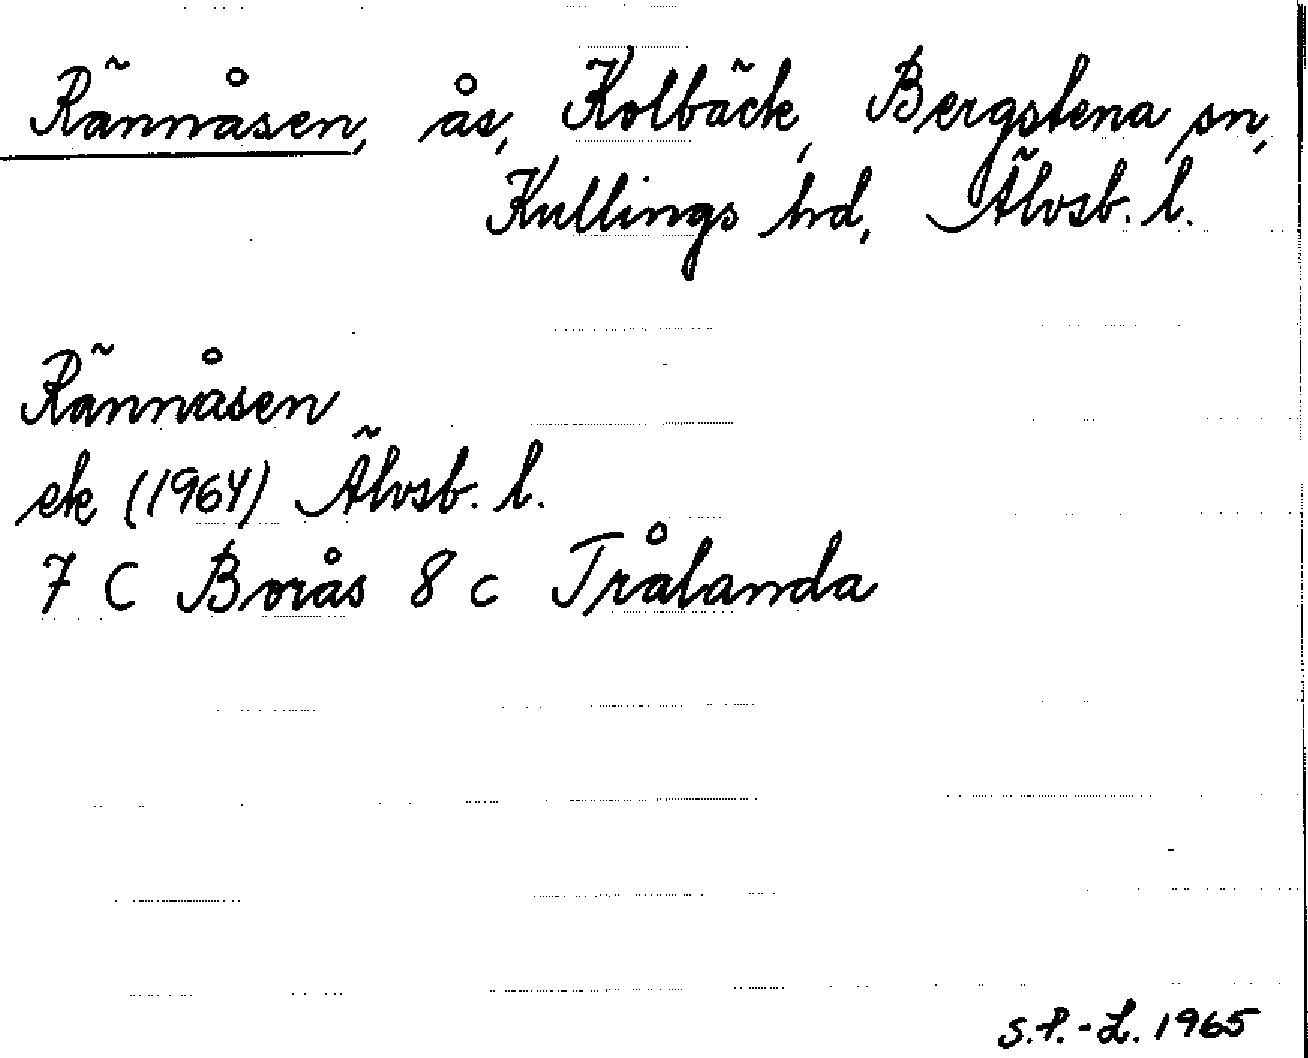 Rännåsen, ås, Kolbäck, Bergstena sn,
Kullings hd, Älvsb. l.
Rännåsen
ek (1964) Älvsb. l.
7 C Borås 8 c Trålanda
S.P.-L. 1965